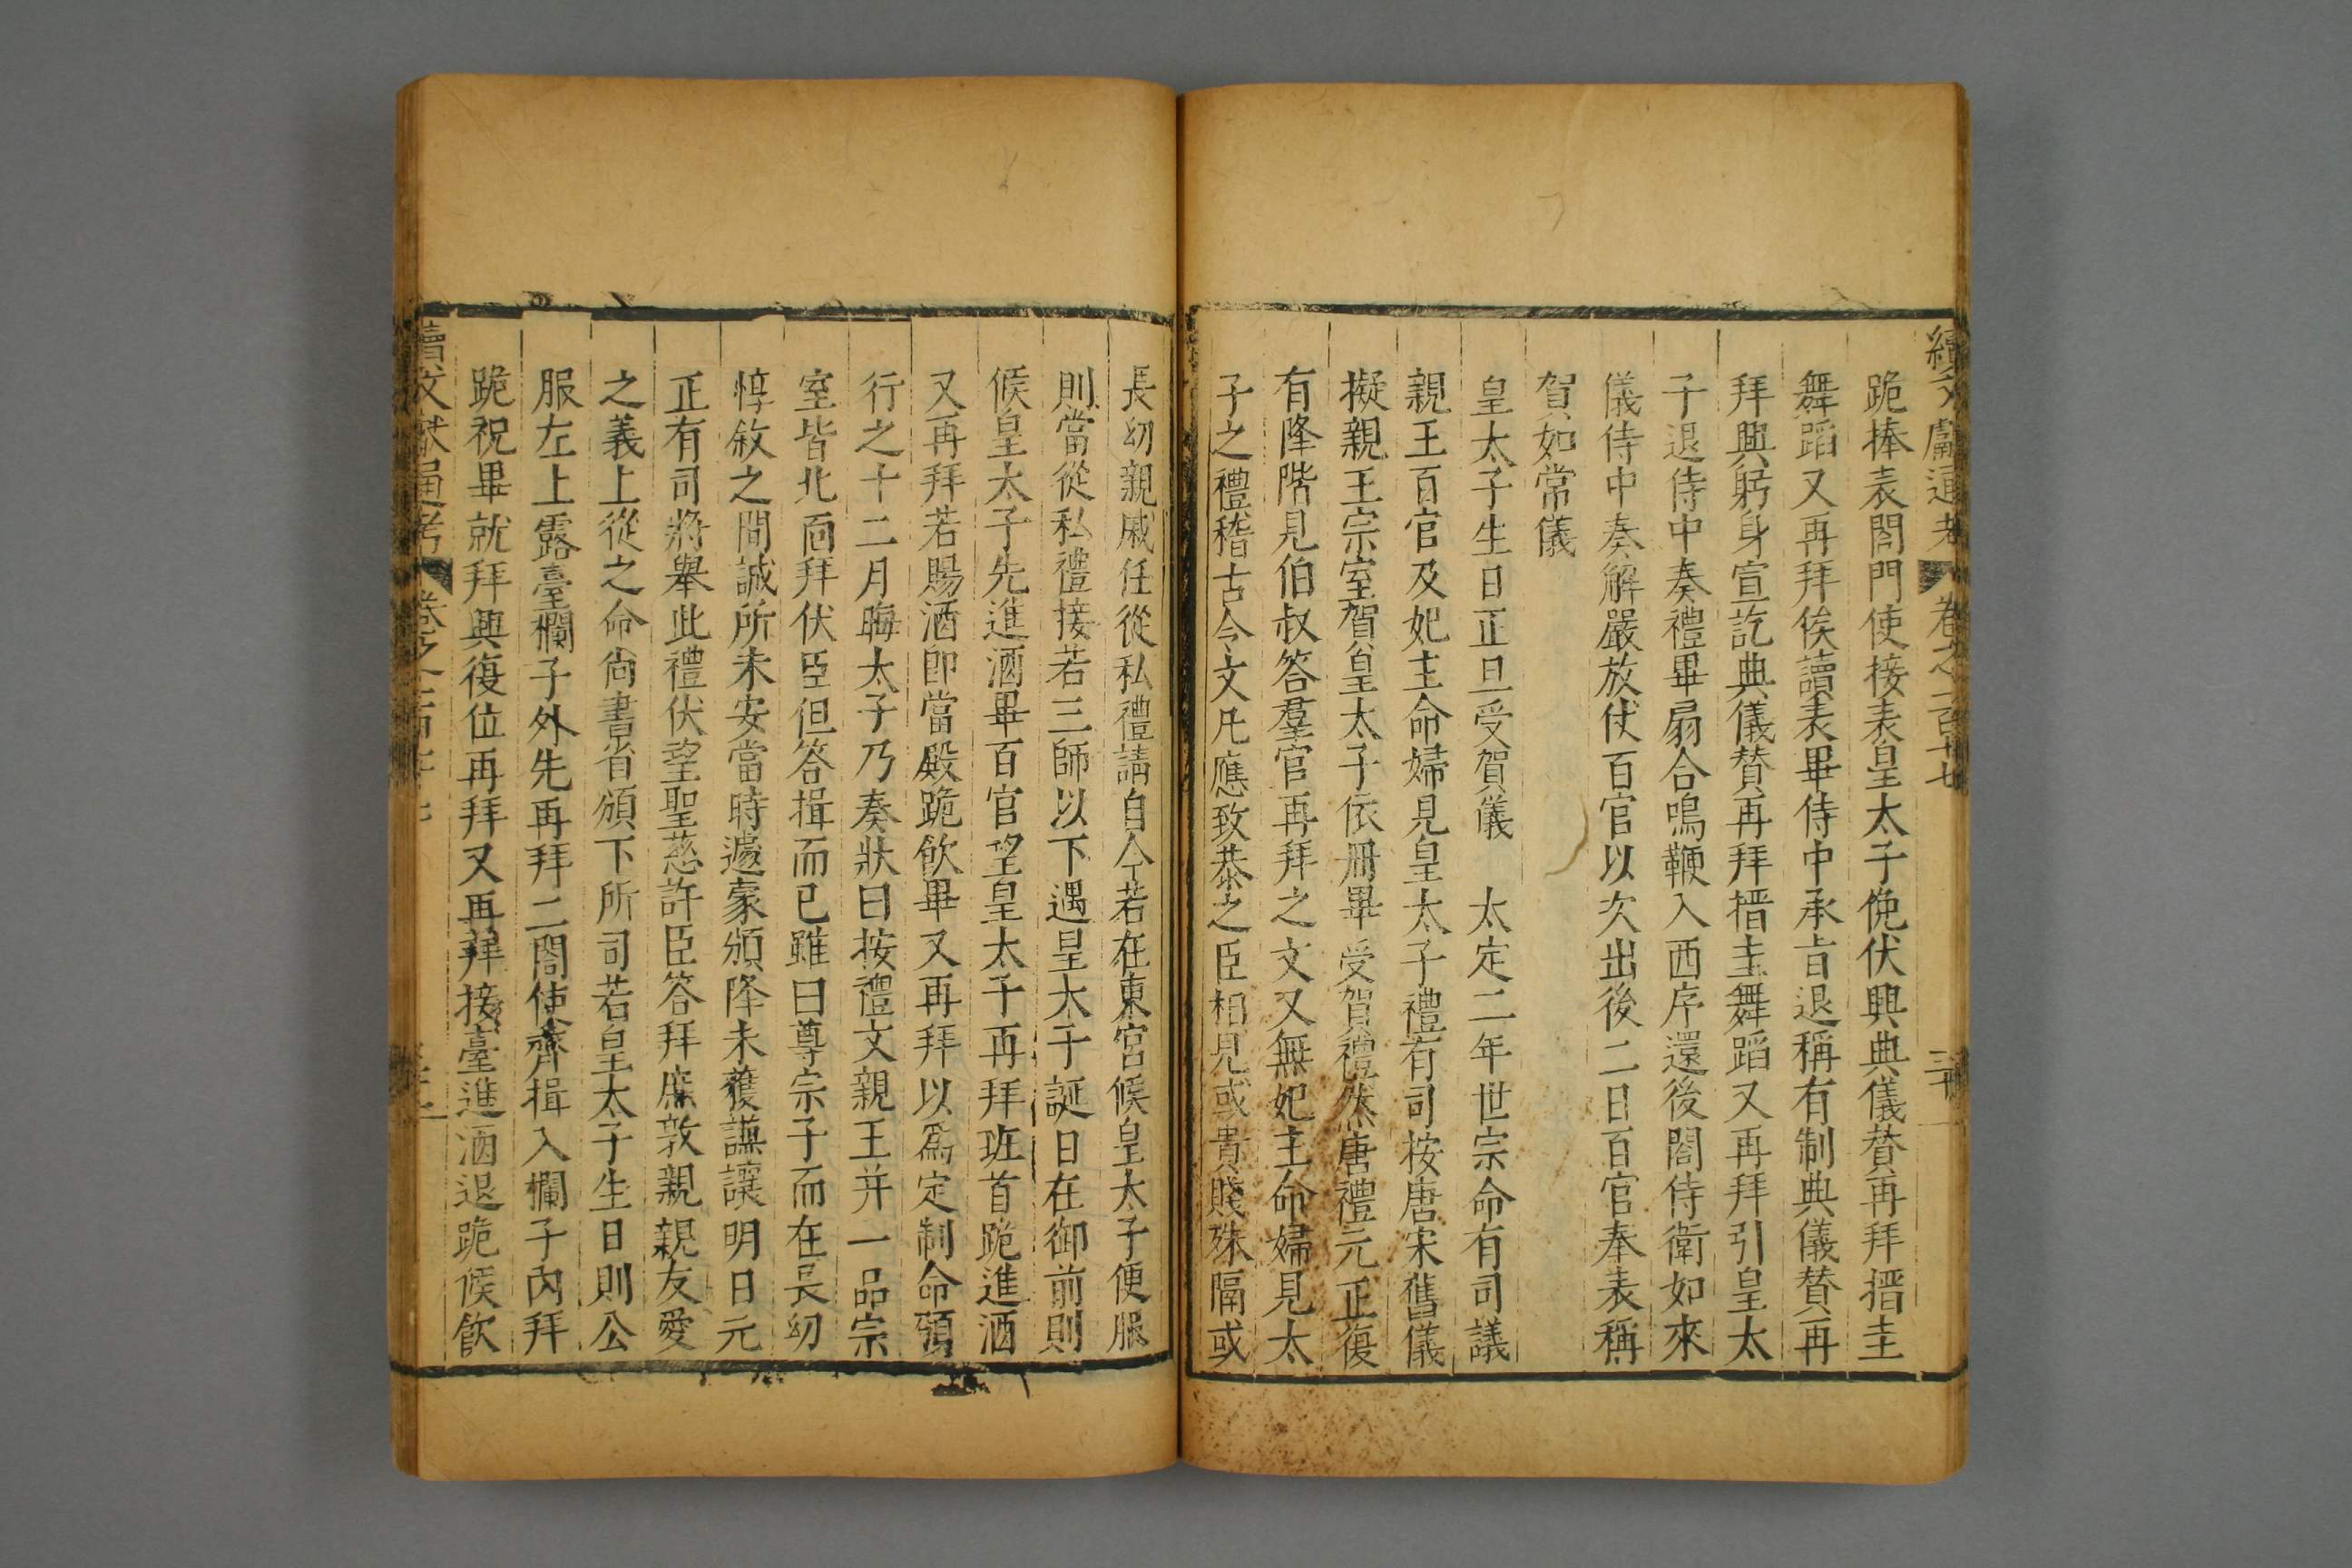 續文獻通考 卷之一百十七 三十
跪捧表閤門使接表皇太子俛伏興典儀賛再拜搢圭
舞蹈又再拜俟讀表畢侍中承旨退稱有制典儀賛再
拜興躬身宣訖典儀賛再拜搢圭舞蹈又再拜引皇太
子退侍中奏禮畢扇合鳴鞭入西序還後閤侍衛如來
儀侍中奏解嚴放仗百官以次出後二日百官奉表稱
賀如常儀
皇太子生日正旦受賀儀 太定二年世宗命有司議
親王百官及妃主命婦見皇太子禮有司按唐宋舊儀
擬親王宗室賀皇太子依冊畢受賀禮然唐禮元正復
有降階見伯叔答羣官再拜之文又無妃主命婦見太
子之禮稽古今文凡應致恭之臣相見或貴賤殊隔或
長幼親戚任從私禮請自今若在東宮候皇太子便服
則當從私禮接若三師以下遇皇太子誕日在御前則
候皇太子先進酒畢百官望皇太子再拜班首跪進酒
又再拜若賜酒即當殿跪飲畢又再拜以爲定制命頒
行之十二月晦太子乃奏狀曰按禮文親王并一品宗
室皆北面拜伏臣但答揖而已雖曰尊宗子而在長幼
惇敘之間誠所未安當時遽蒙頒降未獲謙讓明日元
正有司將舉此禮伏望聖慈許臣答拜庶敦親親友愛
之義上從之命尙書省頒下所司若皇太子生日則公
服左上露臺欄子外先再拜二閤使齊揖入欄子內拜
跪祝畢就拜興復位再拜又再拜接臺進酒退跪候飲
續文獻通考 卷之一百十七